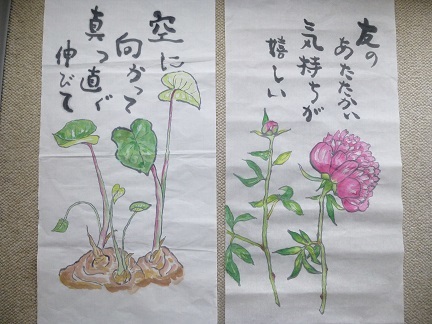 友の
あたたかい
気持ちが
嬉しい
空に
向かって
真っ直ぐ
伸びて